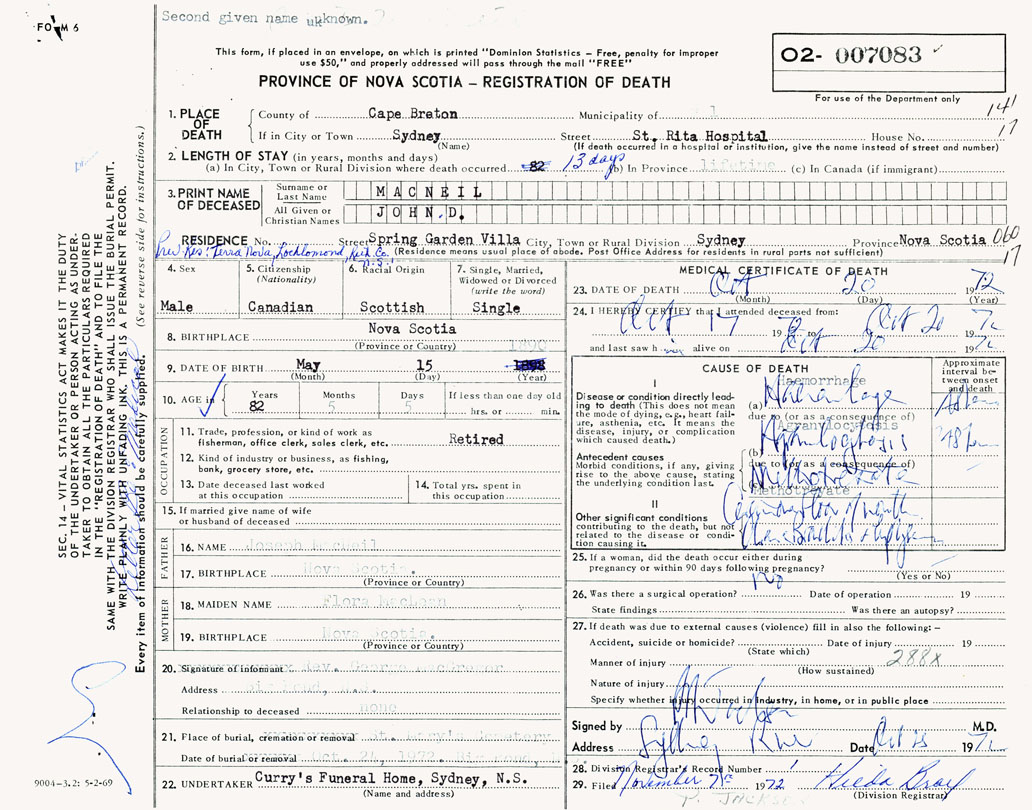 FORM 6
Second given name unknown.
This form, if placed in an envelope, on which is printed "Dominion Statistics – Free, penalty for improper
use $50," and properly addressed will pass through the mail "FREE"
PROVINCE OF NOVA SCOTIA – REGISTRATION OF DEATH
02- 007083
For use of the Department only
141
17
1. PLACE OF DEATH
County of Cape Breton Municipality of
If in City or Town Sydney Street St. Rita Hospital House No.
(Name) (If death occurred in a hospital or institution, give the name instead of street and number)
2. LENGTH OF STAY (in years, months and days)
(a) In City, Town or Rural Division where death occurred 82 13 days (b) In Province lifetime (c) In Canada (if immigrant)
3. PRINT NAME OF DECEASED
Surname or Last Name MACNEIL
All Given or Christian Names JOHN.D.
RESIDENCE No. Street Spring Garden Villa City, Town or Rural Division Sydney Province Nova Scotia 060
17
Prev Res: Terra Nova, Lochlomond, Rich. Co. N.S. (Residence means usual place of abode. Post Office Address for residents in rural parts not sufficient)
4. Sex
Male
5. Citizenship (Nationality)
Canadian
6. Racial Origin
Scottish
7. Single, Married, Widowed or Divorced (write the word)
Single
8. BIRTHPLACE Nova Scotia
(Province or Country)
1890
9. DATE OF BIRTH May 15 1898
(Month) (Day) (Year)
10. AGE in Years Months Days If less than one day old
82 5 5 hrs. or min.
OCCUPATION
11. Trade, profession, or kind of work as fisherman, office clerk, sales clerk, etc. Retired
12. Kind of industry or business, as fishing, bank, grocery store, etc.
13. Date deceased last worked at this occupation
14. Total yrs. spent in this occupation
15. If married give name of wife or husband of deceased
FATHER
16. NAME Joseph MacNeil
17. BIRTHPLACE Nova Scotia.
(Province or Country)
MOTHER
18. MAIDEN NAME Flora MacLean
19. BIRTHPLACE Nova Scotia.
(Province or Country)
20. Signature of informant Rev. George
Address
Relationship to deceased none
21. Place of burial, cremation or removal St. Mary's Cemetery
Date of burial or removal Oct. 24, 1972.
22. UNDERTAKER Curry's Funeral Home, Sydney, N.S.
(Name and address)
MEDICAL CERTIFICATE OF DEATH
23. DATE OF DEATH Oct 20 1972
(Month) (Day) (Year)
24. I HEREBY CERTIFY that I attended deceased from:
Oct 17 1972 to Oct 20 1972
and last saw him alive on Oct 20 1972
CAUSE OF DEATH
Approximate interval between onset and death
I
Disease or condition directly leading to death (This does not mean the mode of dying, e.g., heart failure, asthenia, etc. It means the disease, injury, or complication which caused death.)
(a) Haemorrhage
48 hrs
due to (or as a consequence of)
Agranylocytosis
(b)
48 hrs
Antecedent causes
Morbid conditions, if any, giving rise to the above cause, stating the underlying condition last.
due to (or as a consequence of)
Methotrexate
II
Other significant conditions contributing to the death, but not related to the disease or condition causing it.
25. If a woman, did the death occur either during pregnancy or within 90 days following pregnancy?
(Yes or No)
26. Was there a surgical operation? no Date of operation 19
State findings Was there an autopsy?
27. If death was due to external causes (violence) fill in also the following: –
Accident, suicide or homicide? Date of injury 19
(State which)
Manner of injury 288x
(How sustained)
Nature of injury
Specify whether injury occurred in Industry, in home, or in public place
Signed by M.D.
Address Sydney Date Oct 1972
28. Division Registrar's Record Number
29. Filed November 7th 1972 Hilda Bray
(Division Registrar)
P. JACKSON
SEC. 14 – VITAL STATISTICS ACT MAKES IT THE DUTY
OF THE UNDERTAKER OR PERSON ACTING AS UNDERTAKER TO OBTAIN ALL THE PARTICULARS REQUIRED
IN THE "REGISTRATION OF DEATH" AND FILE THE
SAME WITH THE DIVISION REGISTRAR WHO SHALL ISSUE THE BURIAL PERMIT.
WRITE PLAINLY WITH UNFADING INK. THIS IS A PERMANENT RECORD.
Every item of information should be carefully supplied. (See reverse side for instructions.)
9004-3.2: 5-2-69